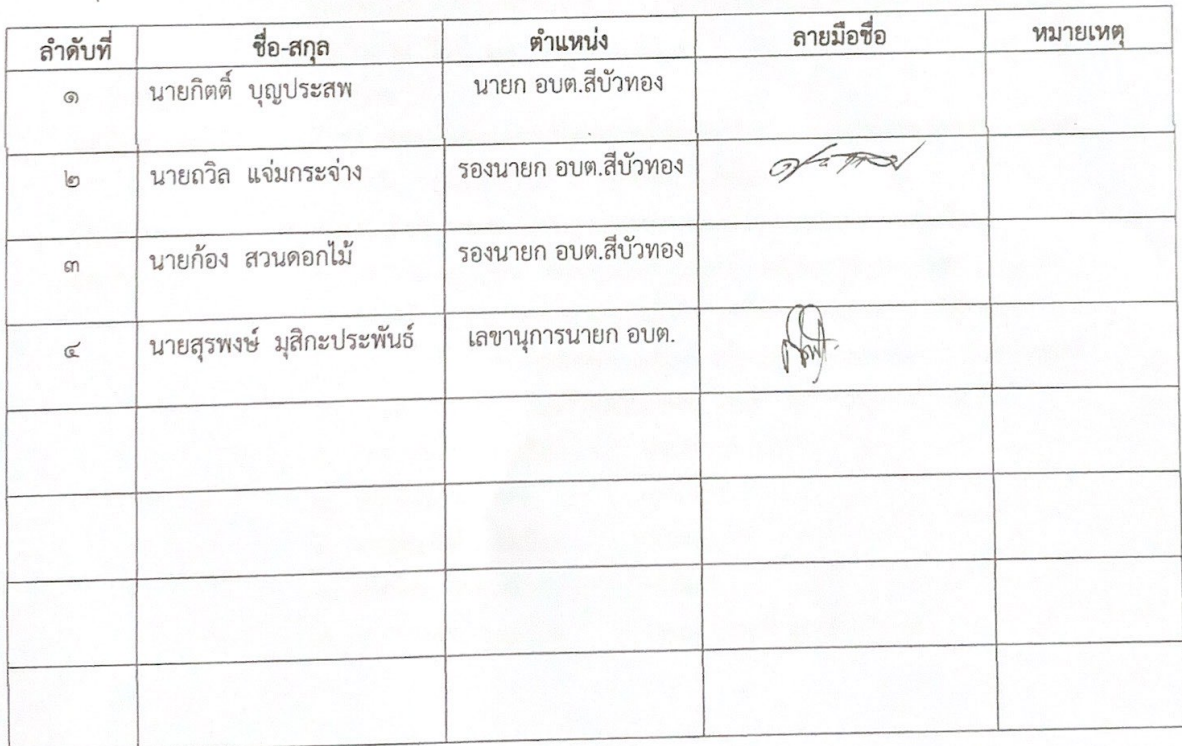 ลำดับที่ ชื่อ-สกุล ตำแหน่ง ลายมือชื่อ หมายเหตุ
๑ นายกิตติ์ บุญประสพ นายก อบต.สีบัวทอง
๒ นายถวิล แจ่มกระจ่าง รองนายก อบต.สีบัวทอง
๓ นายก้อง สวนดอกไม้ รองนายก อบต.สีบัวทอง
๔ นายสุรพงษ์ มุสิกะประพันธ์ เลขานุการนายก อบต.